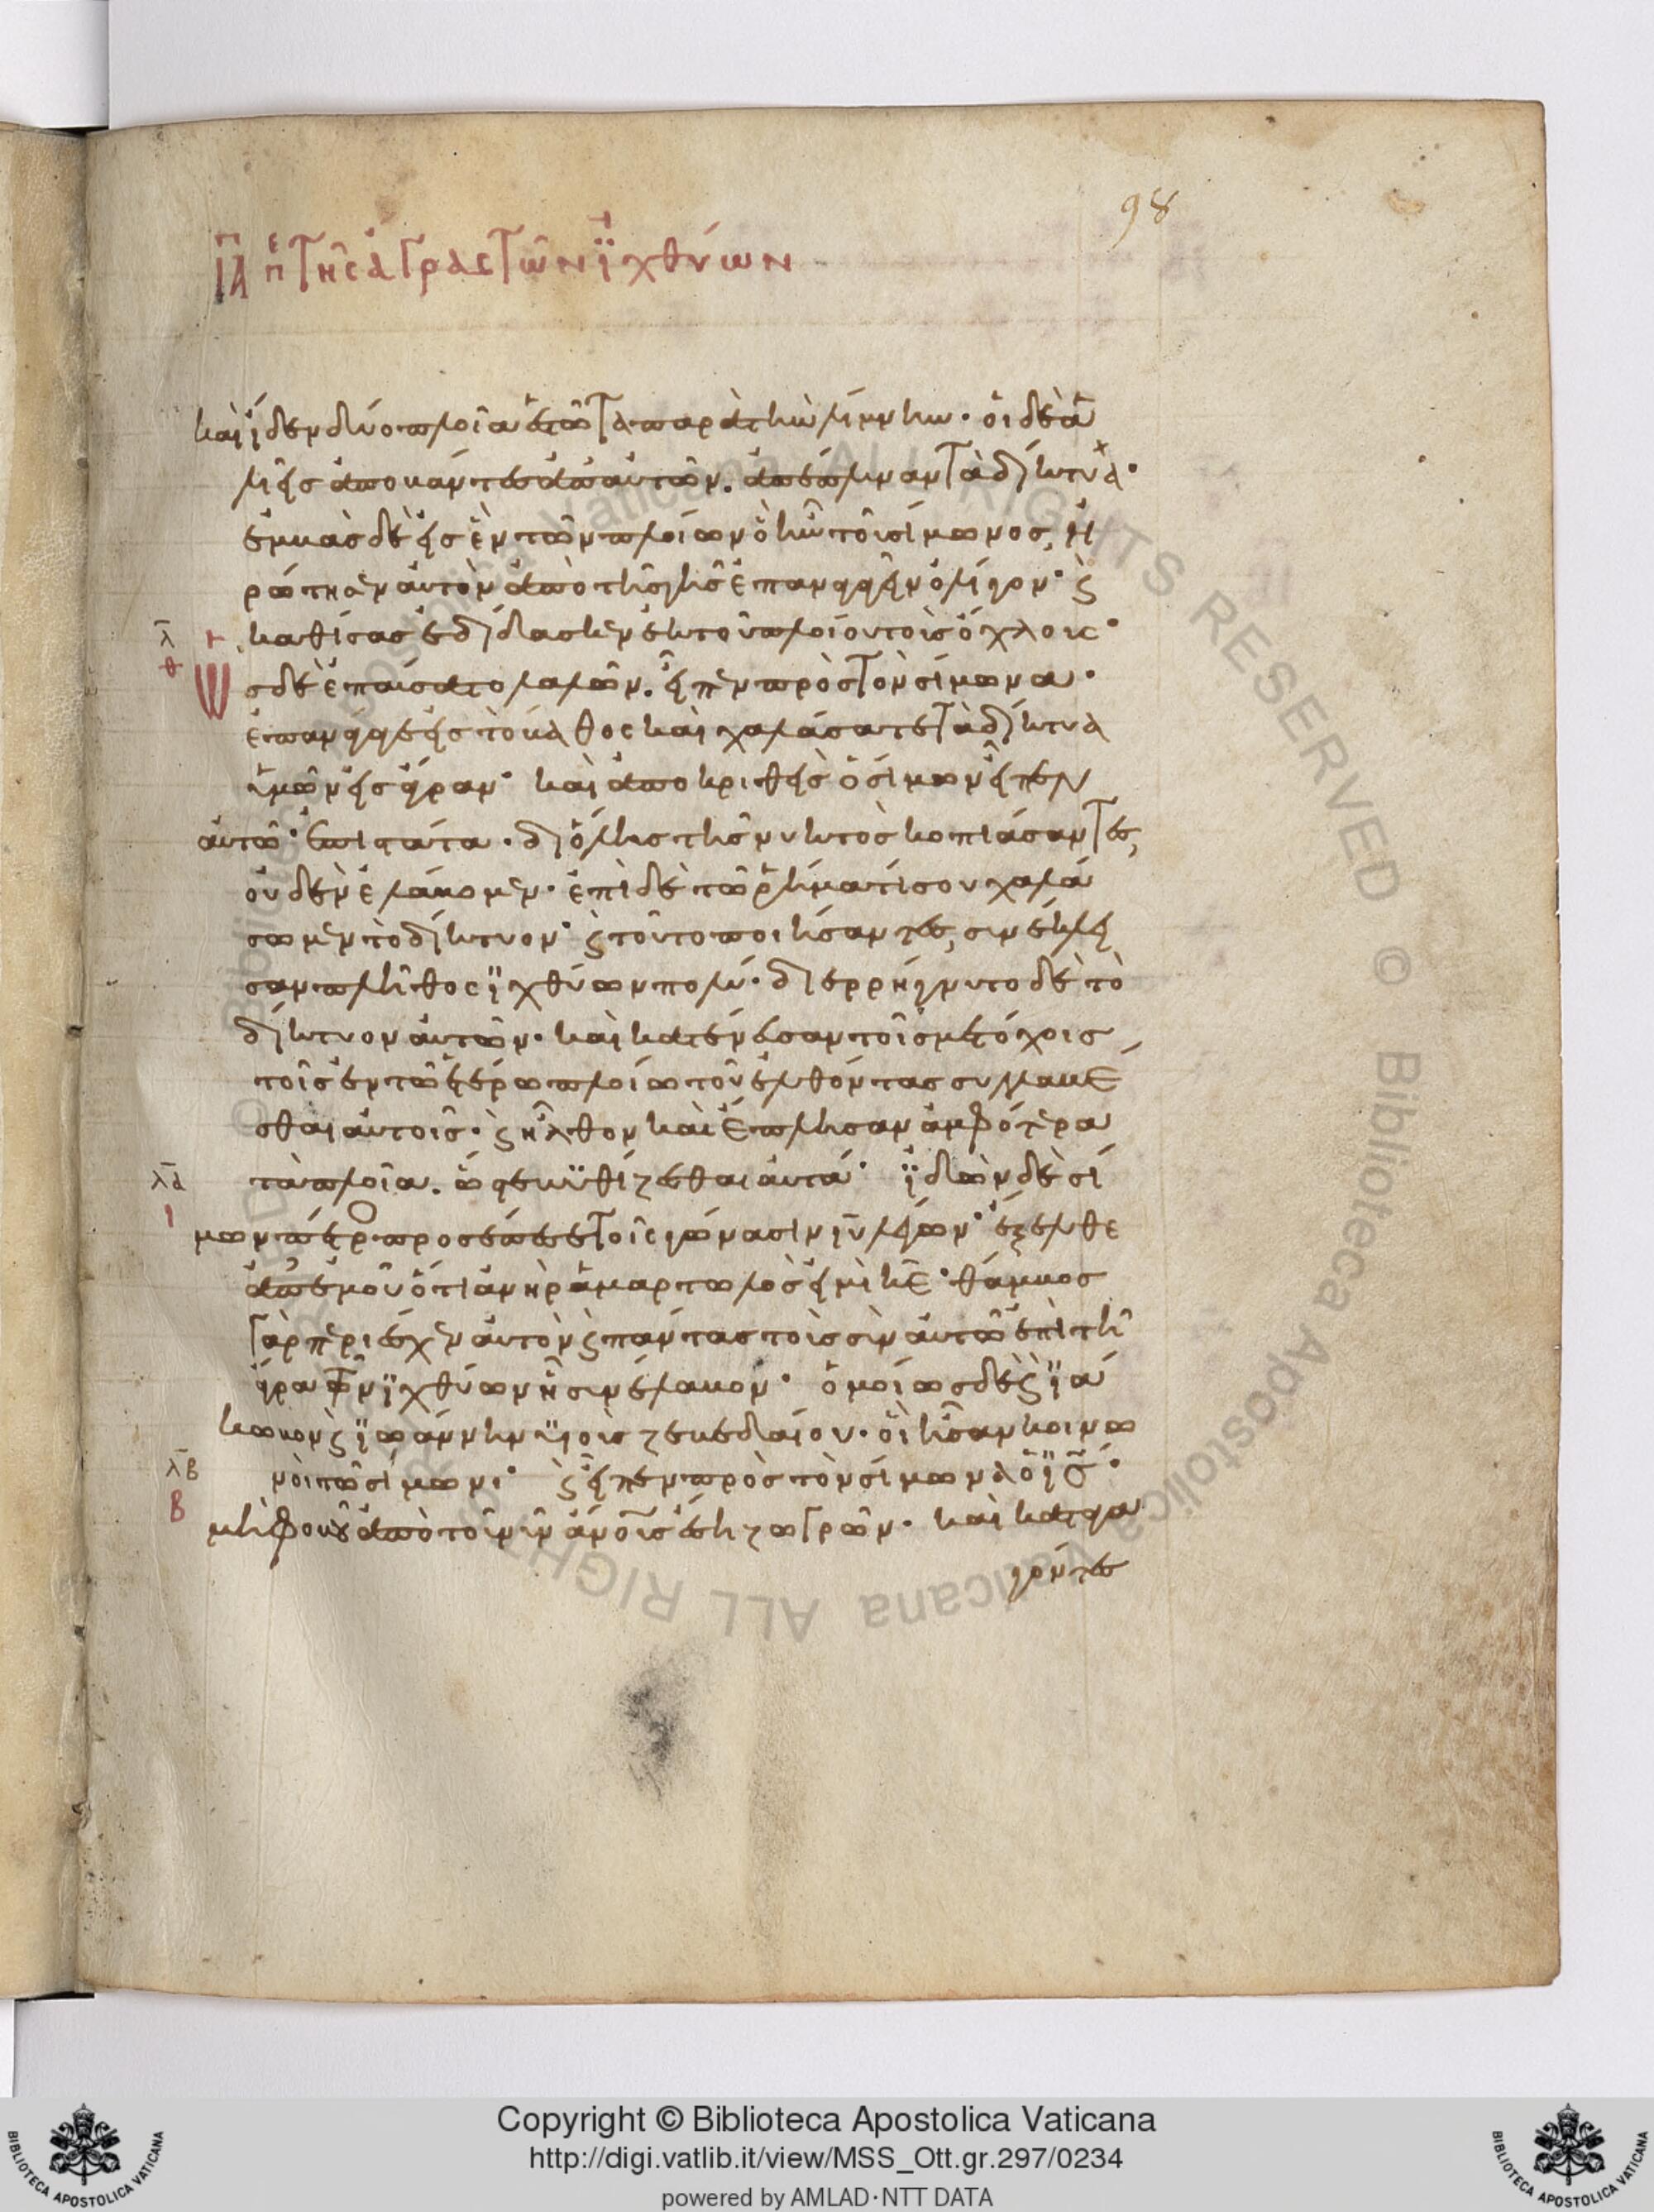 98
ΙΑ πε τῆς ἄγρας τῶν ἰχθύων
καὶ ἴδεν δύο πλοῖα ἑστῶτα παρὰ τὴν λίμνην· οἱ δὲ ἁ
λιεῖς ἀποβάντες ἀπ αὐτῶν. ἀπέπλυναν τὰ δίκτυα·
ἐμβὰς δὲ εἰς ἓν τῶν πλοίων ὃ ἦν τοῦ σίμωνος, ἠ
ρώτησεν αὐτὸν ἀπὸ τῆς γῆς ἐπαναγαγεῖν ὀλίγον· ϛ
καθίσας ἐδίδασκεν ἐκ τοῦ πλοίου τοὺς ὄχλους·
λ
θ
Ὡ
ς δὲ ἐπαύσατο λαλῶν. εἶπεν πρὸς τὸν σίμωνα·
ἐπανάγαγε εἰς τὸ βάθος καὶ χαλάσατε τὰ δίκτυα
ὑμῶν εἰς ἄγραν· καὶ ἀποκριθεὶς ὁ σίμων εἶπεν
αὐτῶ· ἐπιστάτα· δι ὅλης τῆς νυκτὸς κοπιάσαντες,
οὐδὲν ἐλάβομεν· ἐπὶ δὲ τῶ ῥήματί σου χαλά
σωμεν τὸ δίκτυον· ϛ τοῦτο ποιήσαντες, συνέκλει
σαν πλῆθος ἰχθύων πολύ· διερρήγνυτο δὲ τὸ
δίκτυον αὐτῶν· καὶ κατένευσαν τοῖς μετόχοις
τοῖς ἐν τῶ ἑτέρω πλοίω τοῦ ἐλθόντας συλλαβέ
σθαι αὐτοῖς· ϛ ἦλθον καὶ ἔπλησαν ἀμφότερα
τὰ πλοῖα. ὥστε βυθίζεσθαι αὐτά· ἰδὼν δὲ σί
λα
ι
μων πέτρο προσέπεσε τοῖς γόνασιν ιυ λέγων· ἔξελθε
ἀπ ἐμοῦ ὅτι ἀνὴρ ἁμαρτωλὸς εἰμὶ κε· θάμβος
γὰρ περιέσχεν αὐτὸν ϛ πάντας τοὺς σὺν αὐτῶ ἐπὶ τῆ
ἄγρα τῶν ἰχθύων ἧ συνέλαβον· ὁμοίως δὲ ϛ ϊά
κωβον ϛ ϊωάννην υἱοὺς ζεβεδαίου· οἳ ἦσαν κοινω
νοὶ τῶ σίμωνι· ϛ εἶπεν πρὸς τὸν σίμωνα ὁ ις·
λβ
β
μὴ φοβοῦ ἀπὸ τοῦ νῦν ανους ἔση ζωγρῶν· καὶ καταγα
γόντες
Copyright © Biblioteca Apostolica Vaticana
http://digi.vatlib.it/view/MSS_Ott.gr.297/0234
powered by AMLAD·NTT DATA